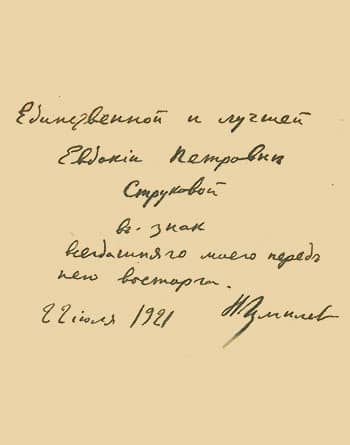 Единственной и лучшей
Евдокіи Петровны
Струковой
въ знак
всегдашняго моего передъ
нею восторга.
22 июля 1921 Н Гумилев